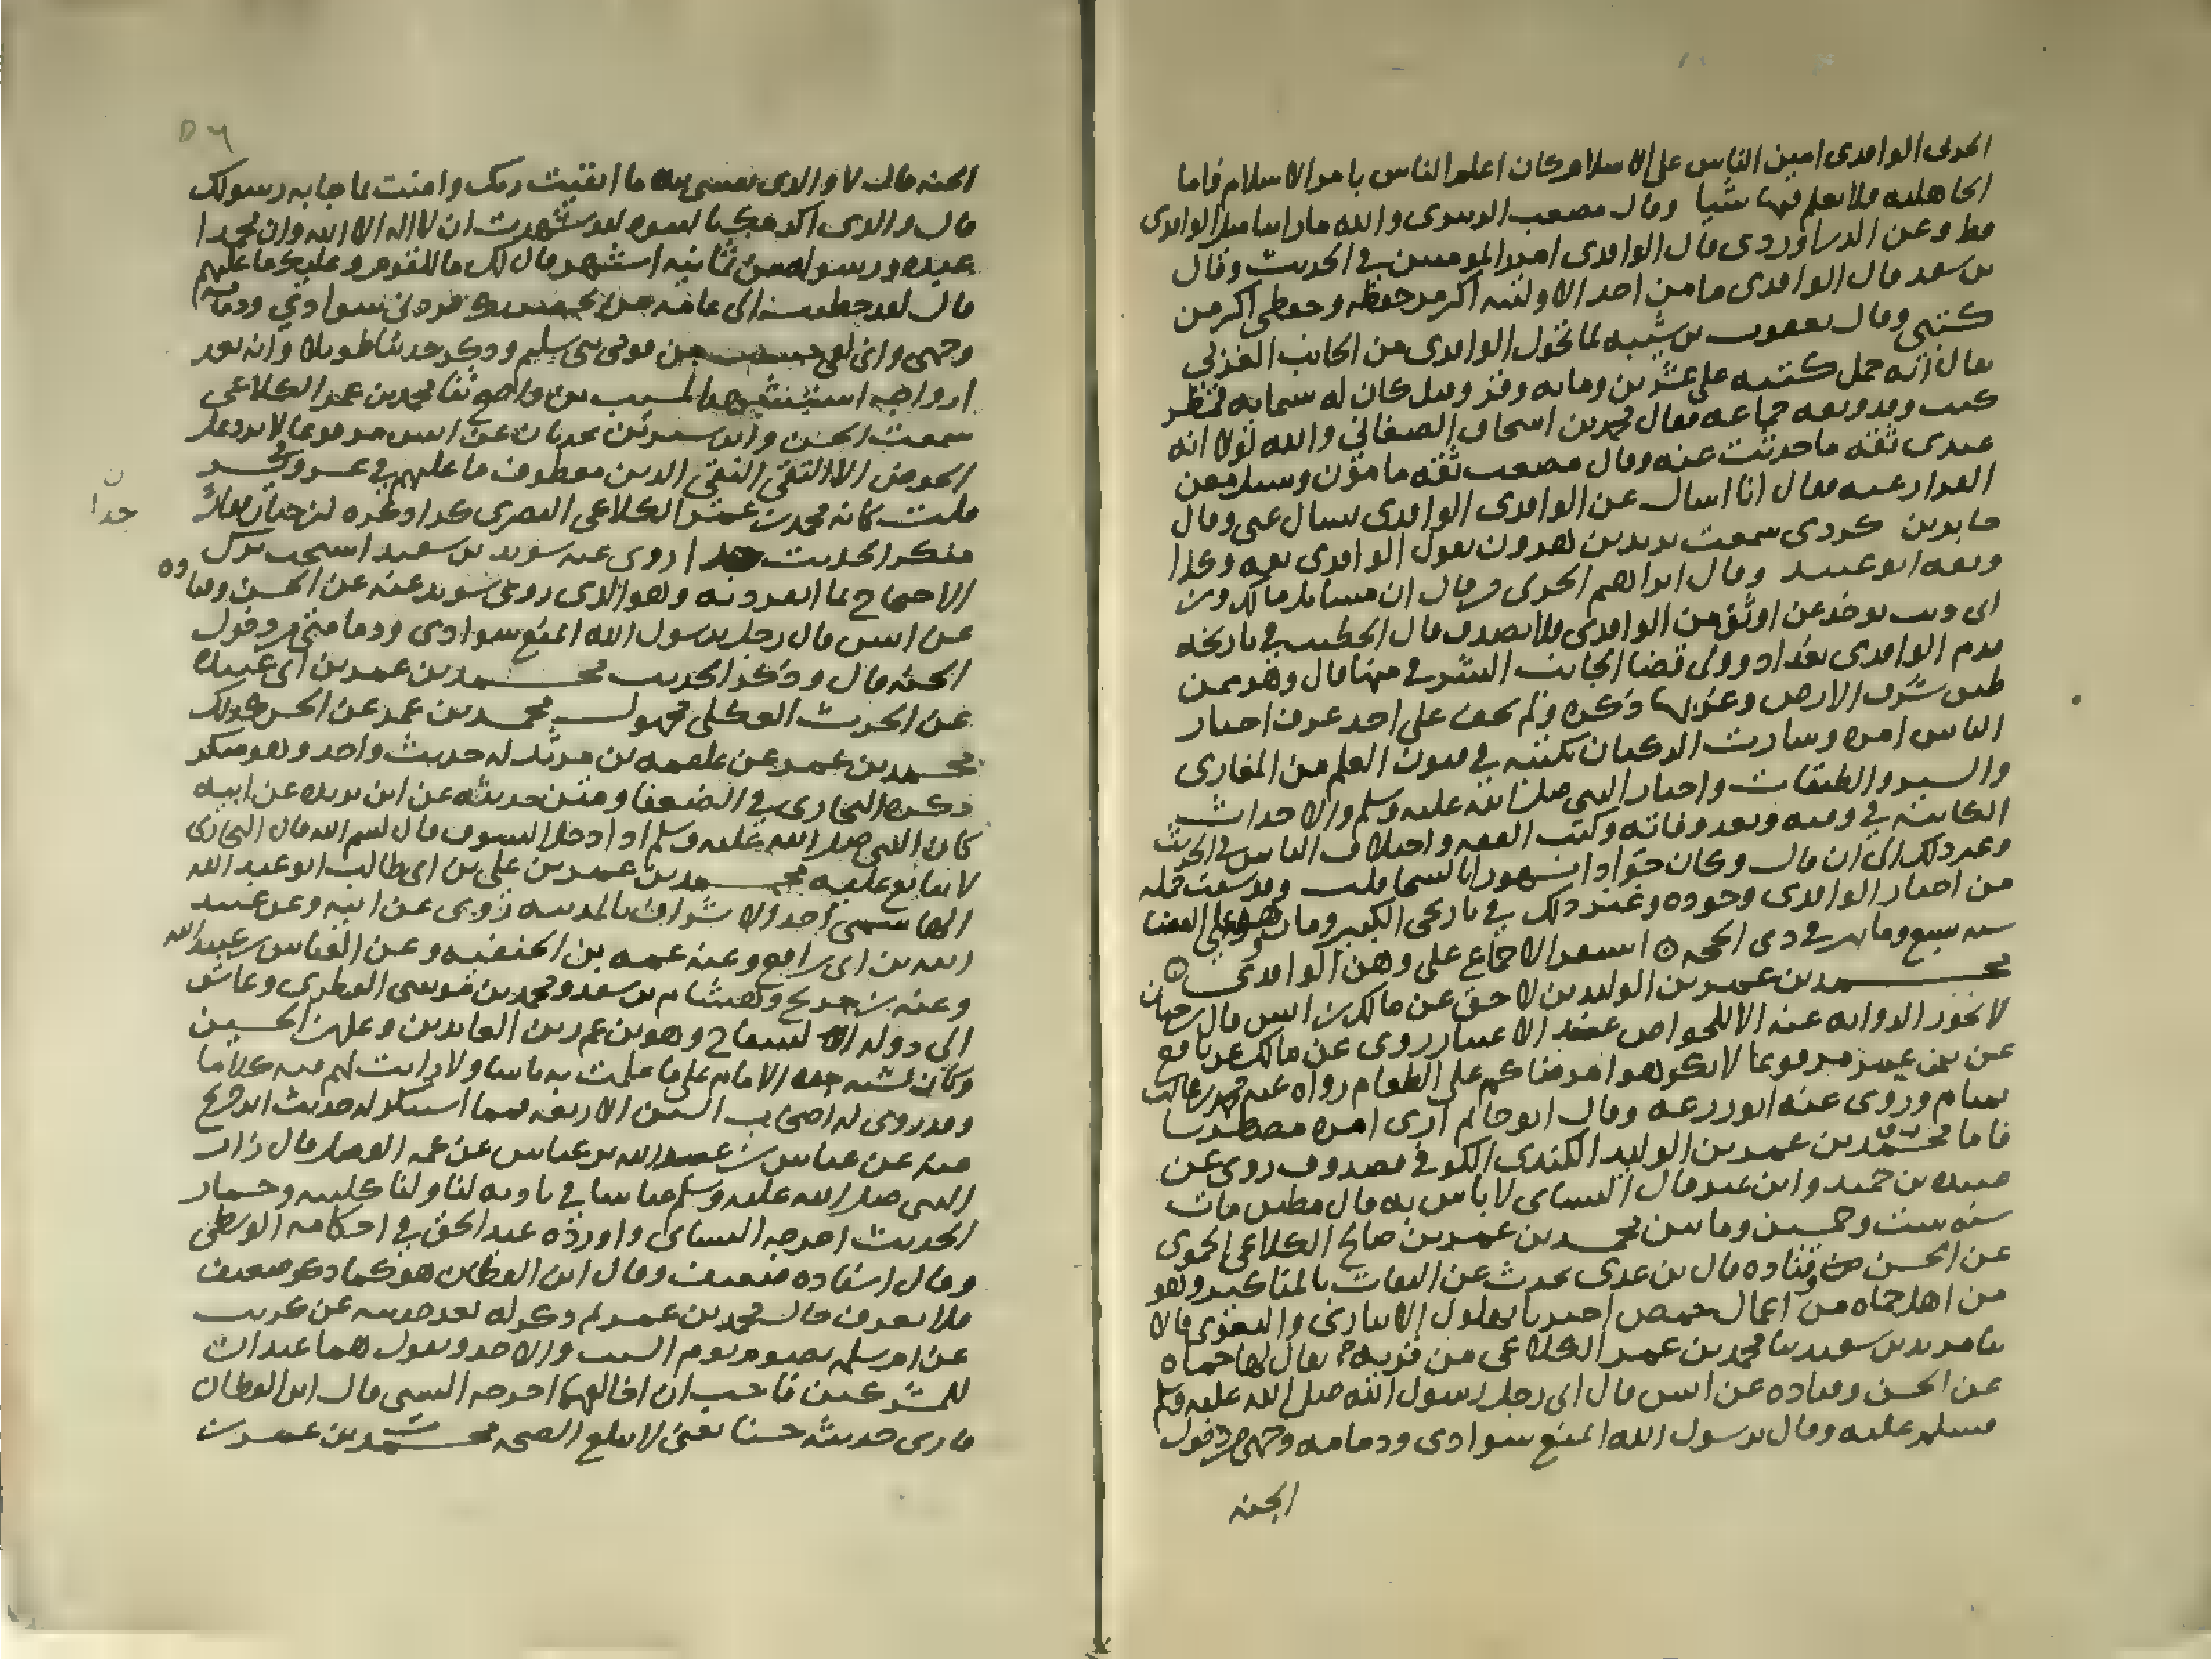 الحربى الواقدى امين الناس على الاسلام كان اعلم الناس بامر الاسلام فاما
الجاهليه فلا يعلم فيها شيا وقال مصعب الزبيرى والله ما راينا مثل الواقدى
قط وعن الدراوردى قال الواقدى امير المومنين في الحديث وقال
بن سعد قال الواقدى ما من احد الا وكتبه اكثر من حفظه وحفظى اكثر من
كتبى وقال يعقوب بن شيبه لما تحول الواقدى من الجانب الغربى
يقال انه حمل كتبه على عشرين ومايه وقر وقيل كان له ستمايه قمطر
كتب وقد وثقه جماعه فقال محمد بن اسحاق الصغاني والله لولا انه
عندى ثقه ما حدثت عنه وقال مصعب ثقه مامون وسيل معن
القزاز عنه فقال انا اسال عن الواقدى الواقدى يسال عنى وقال
جابر بن كردى سمعت يزيد بن هرون يقول الواقدى ثقه وكذا
وثقه ابو عبيد وقال ابراهيم الحربى من قال ان مسايل مالك وبن
ابى ذيب توخذ عن اوثق من الواقدى فلا يصدق قال الخطيب في تاريخه
قدم الواقدى بغداد وولى قضا الجانب الشرقى منها قال وهو ممن
طبق شرق الارض وغربها ذكره ولم يخف على احد عرف اخبار
الناس امره وسارت الركبان بكتبه في فنون العلم من المغازى
والسير والطبقات واخبار النبى صلى الله عليه وسلم والاحداث
الكاينه في وقته وبعد وفاته وكتب الفقه واختلاف الناس في الحديث
وغير ذلك الى ان قال وكان جوادا مشهورا بالسخا قلت وقد سقت جمله
من اخبار الواقدى وجوده وغير ذلك في تاريخى الكبير ومات وهو على القضا
سنه سبع ومايتين في ذى الحجه استقر الاجماع على وهن الواقدى
محمد بن عمر بن الوليد بن لاحق عن مالك بن انس قال بن حبان
لا تجوز الروايه عنه الا للخواص عند الاعتبار روى عن مالك عن نافع
عن بن عمر مرفوعا لا تكرهوا مرضاكم على الطعام رواه عنه محمد بن غالب
تمتام وروى عنه ابو زرعه وقال ابو حاتم ارى امره مضطربا
فاما محمد بن عمر بن الوليد الكندى الكوفى فصدوق روى عن
عبيده بن حميد وابن عيينه قال النساى لا باس به قال مطين مات
سنه ست وخمسين وماتين محمد بن عمر بن صالح الكلاعى الحموى
عن الحسن وقتاده قال بن عدى يحدث عن الثقات بالمناكير وهو
من اهل حماه من اعمال حمص اخبرنا بهلول الانبارى والبغوى قالا
ثنا سويد بن سعيد ثنا محمد بن عمر الكلاعى من قريه يقال لها حماه
عن الحسن وقتاده عن انس قال اتى رجل رسول الله صلى الله عليه وسلم
فسلم عليه وقال يرسول الله ايمنع سوادى ودمامه وجهى من دخول
الجنه
٥٦
الجنه قال لا والذى نفسى بيده ما ايقنت بربك وامنت بما جا به رسولك
قال والذى اكرمك بالنبوه لقد شهدت ان لا اله الا الله وان محمدا
عبده ورسوله من ثمانيه اشهر قال لك ما للقوم وعليك ما عليهم
قال لقد خطبت الى عامه من بحضرتك فردنى سوادى ودمامه
وجهى وانى لفى حسب من قومى بنى سليم وذكر حديثا طويلا وانه بعد
ازواجه استشهد المسيب بن واضح ثنا محمد بن عمر الكلاعى
سمعت الحسن وابن سيرين يحدثان عن انس مرفوعا لا يرد على
الحوض الا التقى النقى الذين يعطون ما عليهم في عسر ويسر
قلت كانه محمد بن عمر الكلاعى البصرى كذا ذكره ابن حبان وقال
منكر الحديث جدا روى عنه سويد بن سعيد استحب ترك
ن
جدا
الاحتجاج بما انفرد به وهو الذى روى سويد عنه عن الحسن وقتاده
عن انس قال رجل يرسول الله ايمنع سوادى ودمامتى من دخول
الجنه قال وذكر الحديث محمد بن عمر بن ابى عبيده
عن الحرث العكلى مجهول محمد بن عمر عن الحسن كذلك
محمد بن عمر عن علقمه بن مرثد له حديث واحد وهو منكر
ذكره البخارى في الضعفا ومتن حديثه عن ابن بريده عن ابيه
كان النبى صلى الله عليه وسلم اذا دخل السوق قال بسم الله قال البخارى
لا يتابع عليه محمد بن عمر بن على بن ابى طالب ابو عبد الله
الهاشمى احد الاشراف بالمدينه روى عن ابيه وعن عبيد
الله بن ابى رافع وعنه عمه بن الحنفيه وعن العباس بن عبيد الله
وعنه بن جريج وهشام بن سعد ومحمد بن موسى الفطرى وعاش
الى دوله السفاح وهو بن عم زين العابدين وعلى بن الحسين
وكان يشبه جده الامام على ما علمت به باسا ولا رايت لهم فيه كلاما
وقد روى له اصحاب السنن الاربعه فما استنكر له حديث ابن جريج
عنه عن عباس بن عبيد الله بن عباس عن عمه الفضل قال زار
النبى صلى الله عليه وسلم عباسا في باديه لنا ولنا كليبه وحمار
الحديث اخرجه النساى واورده عبد الحق في احكامه الوسطى
وقال اسناده ضعيف وقال ابن القطان هو كما ذكر ضعيف
فلا يعرف حال محمد بن عمر ثم ذكر له بعد حديثه عن كريب
عن ام سلمه بصوم يوم السبت والاحد ويقول هما عيدان
للمشركين فاحب ان اخالفهما اخرجه النسى قال ابن القطان
فارى حديثه حسنا يعنى لا يبلغ الصحه محمد بن عمر بن